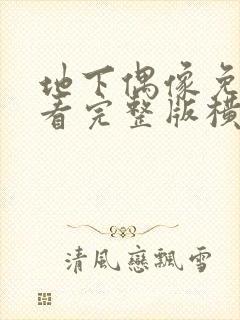 地下偶像免
看完整版横
清風戀飄雪